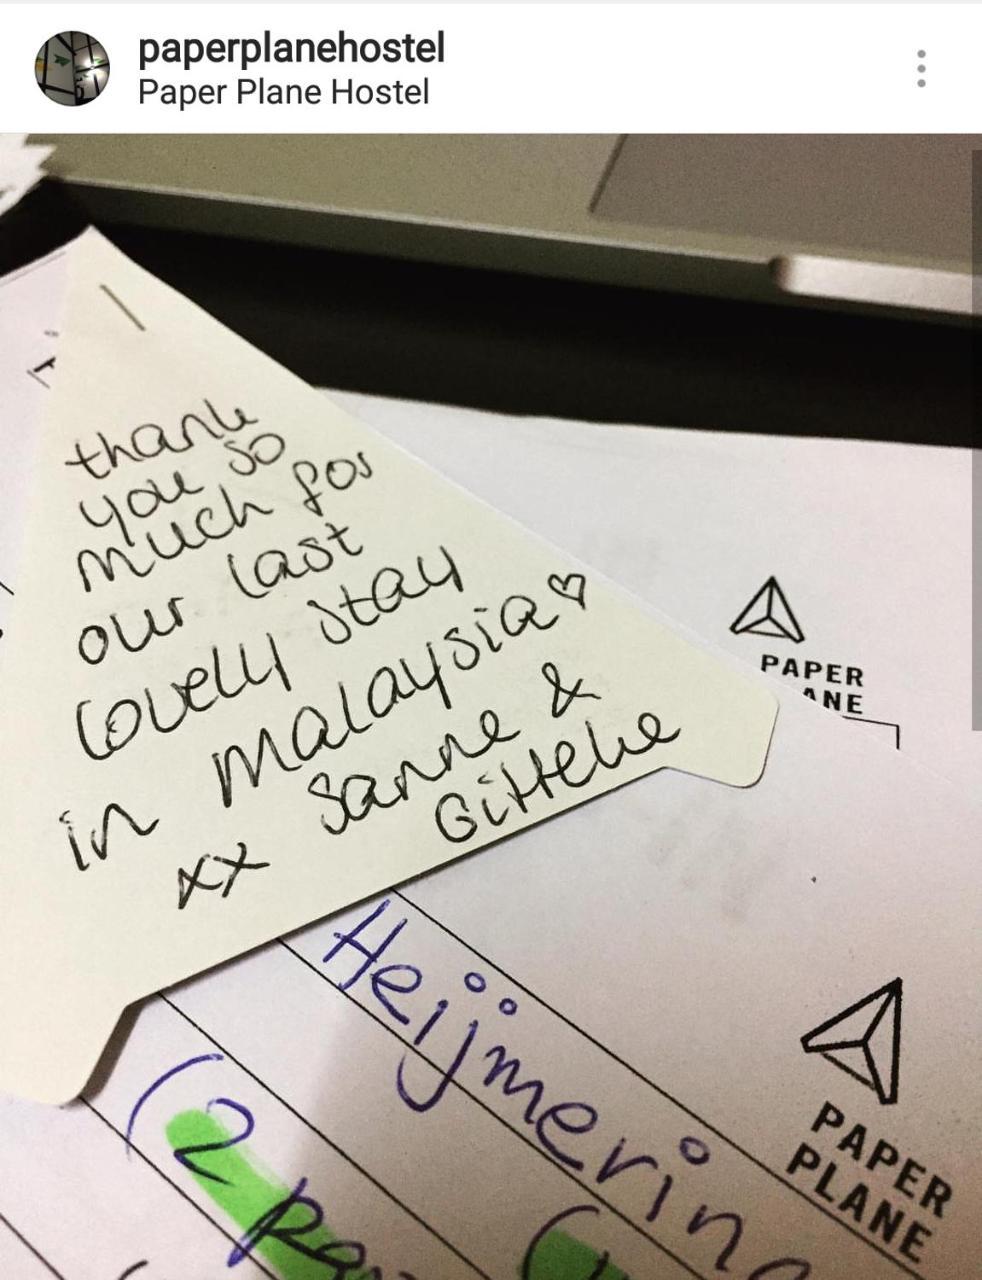 paperplanehostel
Paper Plane Hostel
thank
you so
much for
our last
lovely stay
in Malaysia♡
xx Sanne &
Gitteke
PAPER
ANE
Heijmerin
(2 pa
PAPER
PLANE